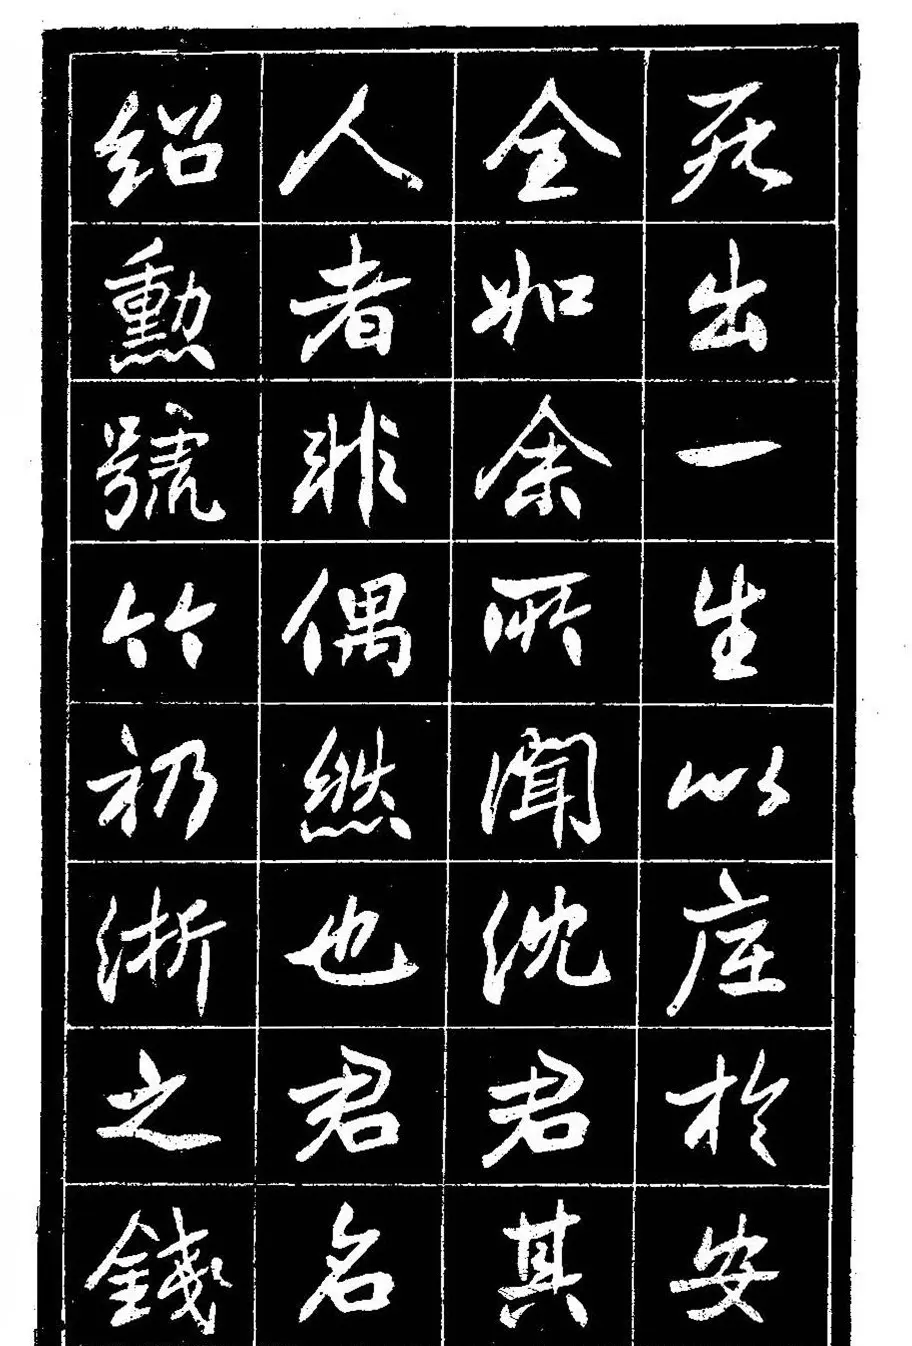 死出一生以座於安
全如余所聞沈君其
人者非偶然也君名
紹勳號竹礽浙之錢